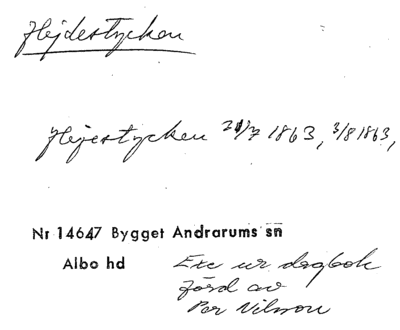 Hejdestycken
Hejestycken 21/7 1863, 3/8 1863,
Nr 14647 Bygget Andrarums sn
Albo hd
Exc ur dagbok
förd av
Per Nilsson